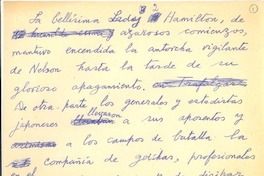 La bellísima Lady Hamilton, de
azarosos comienzos,
mantuvo encendida la antorcha vigilante
de Nelson hasta la tarde de su
glorioso apagamiento. en Trafalgar.
De otra parte los generales y estadistas
japoneses llevaron a sus aposentos y
a los campos de batalla la
compañía de geishas, profesionales
en el